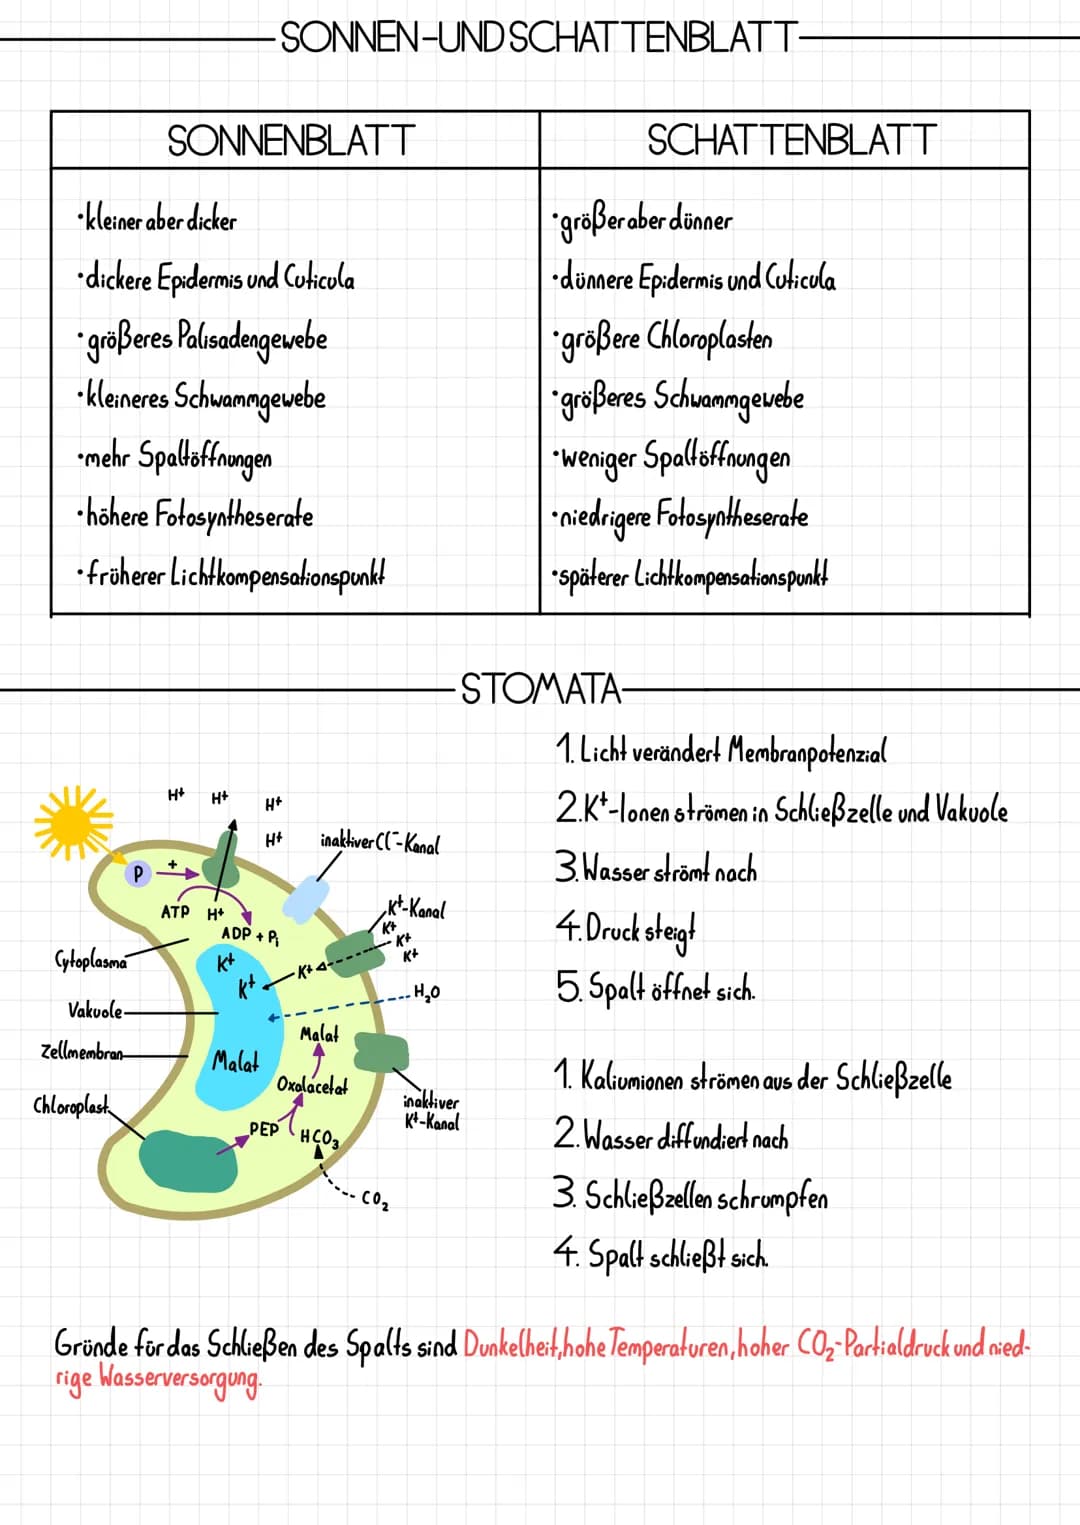 SONNEN-UND SCHATTENBLATT
SONNENBLATT
SCHATTENBLATT
•kleiner aber dicker
•dickere Epidermis und Cuticula
•größeres Palisadengewebe
•kleineres Schwammgewebe
•mehr Spaltöffnungen
•höhere Fotosyntheserate
•früherer Lichtkompensationspunkt
•größer aber dünner
•dünnere Epidermis und Cuticula
•größere Chloroplasten
•größeres Schwammgewebe
•weniger Spaltöffnungen
•niedrigere Fotosyntheserate
•späterer Lichtkompensationspunkt
STOMATA
H+ H+ H+
H+
inaktiver Cl⁻-Kanal
P +
ATP H+
ADP + Pi
K+-Kanal
K+
K+
K+
Cytoplasma
K+
K+
K+
H₂O
Vakuole
Malat
Zellmembran
Malat
Oxalacetat
Chloroplast
inaktiver
K+-Kanal
PEP
HCO₃
CO₂
1. Licht verändert Membranpotenzial
2. K+-Ionen strömen in Schließzelle und Vakuole
3. Wasser strömt nach
4. Druck steigt
5. Spalt öffnet sich.
1. Kaliumionen strömen aus der Schließzelle
2. Wasser diffundiert nach
3. Schließzellen schrumpfen
4. Spalt schließt sich.
Gründe für das Schließen des Spalts sind Dunkelheit, hohe Temperaturen, hoher CO₂-Partialdruck und nied-
rige Wasserversorgung.